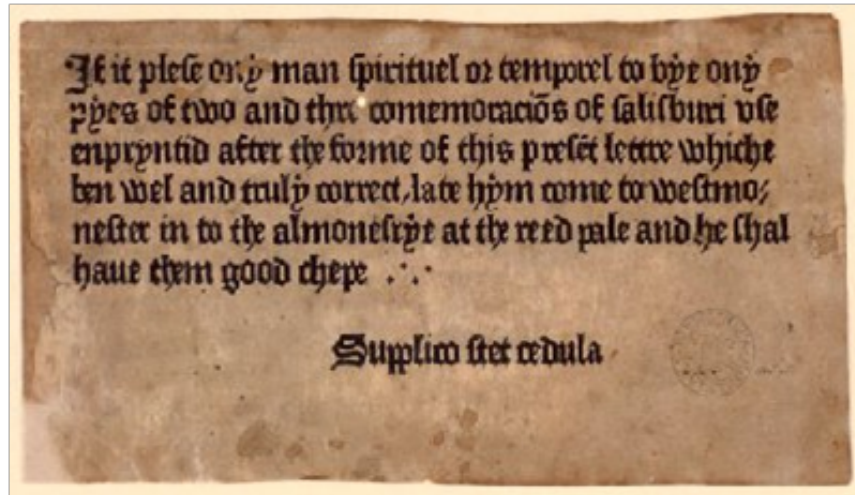 If it plese ony man spirituel or temporel to bye ony
pyes of two and thre comemoraciōs of salisburi vse
enpryntid after the forme of this presēt lettre whiche
ben wel and truly correct, late hym come to westmo⸗
nester in to the almonesrye at the reed pale and he shal
haue them good chepe ∴
Supplico stet cedula